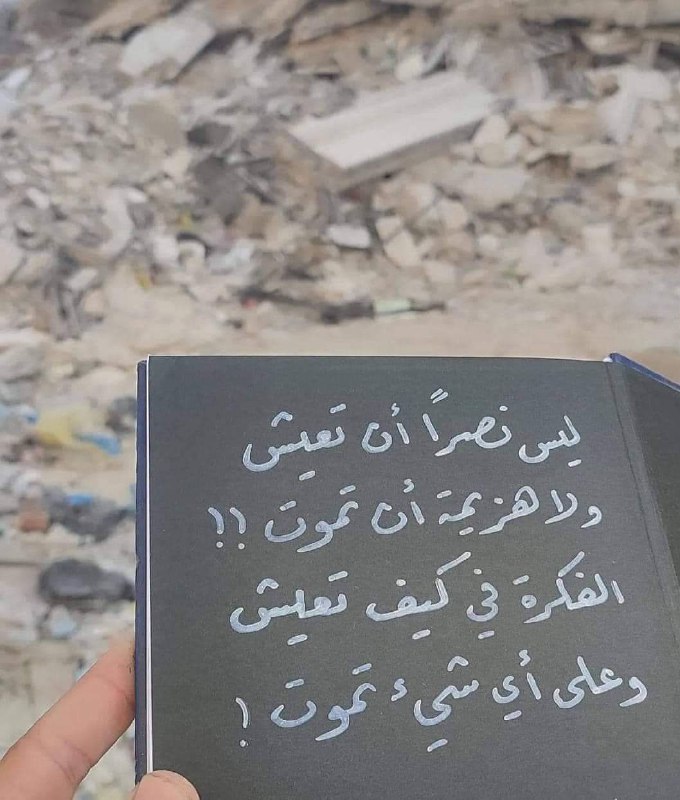 ليس نصراً أن تعيش
ولا هزيمة أن تموت !!
الفكرة في كيف تعيش
وعلى أي شيء تموت !